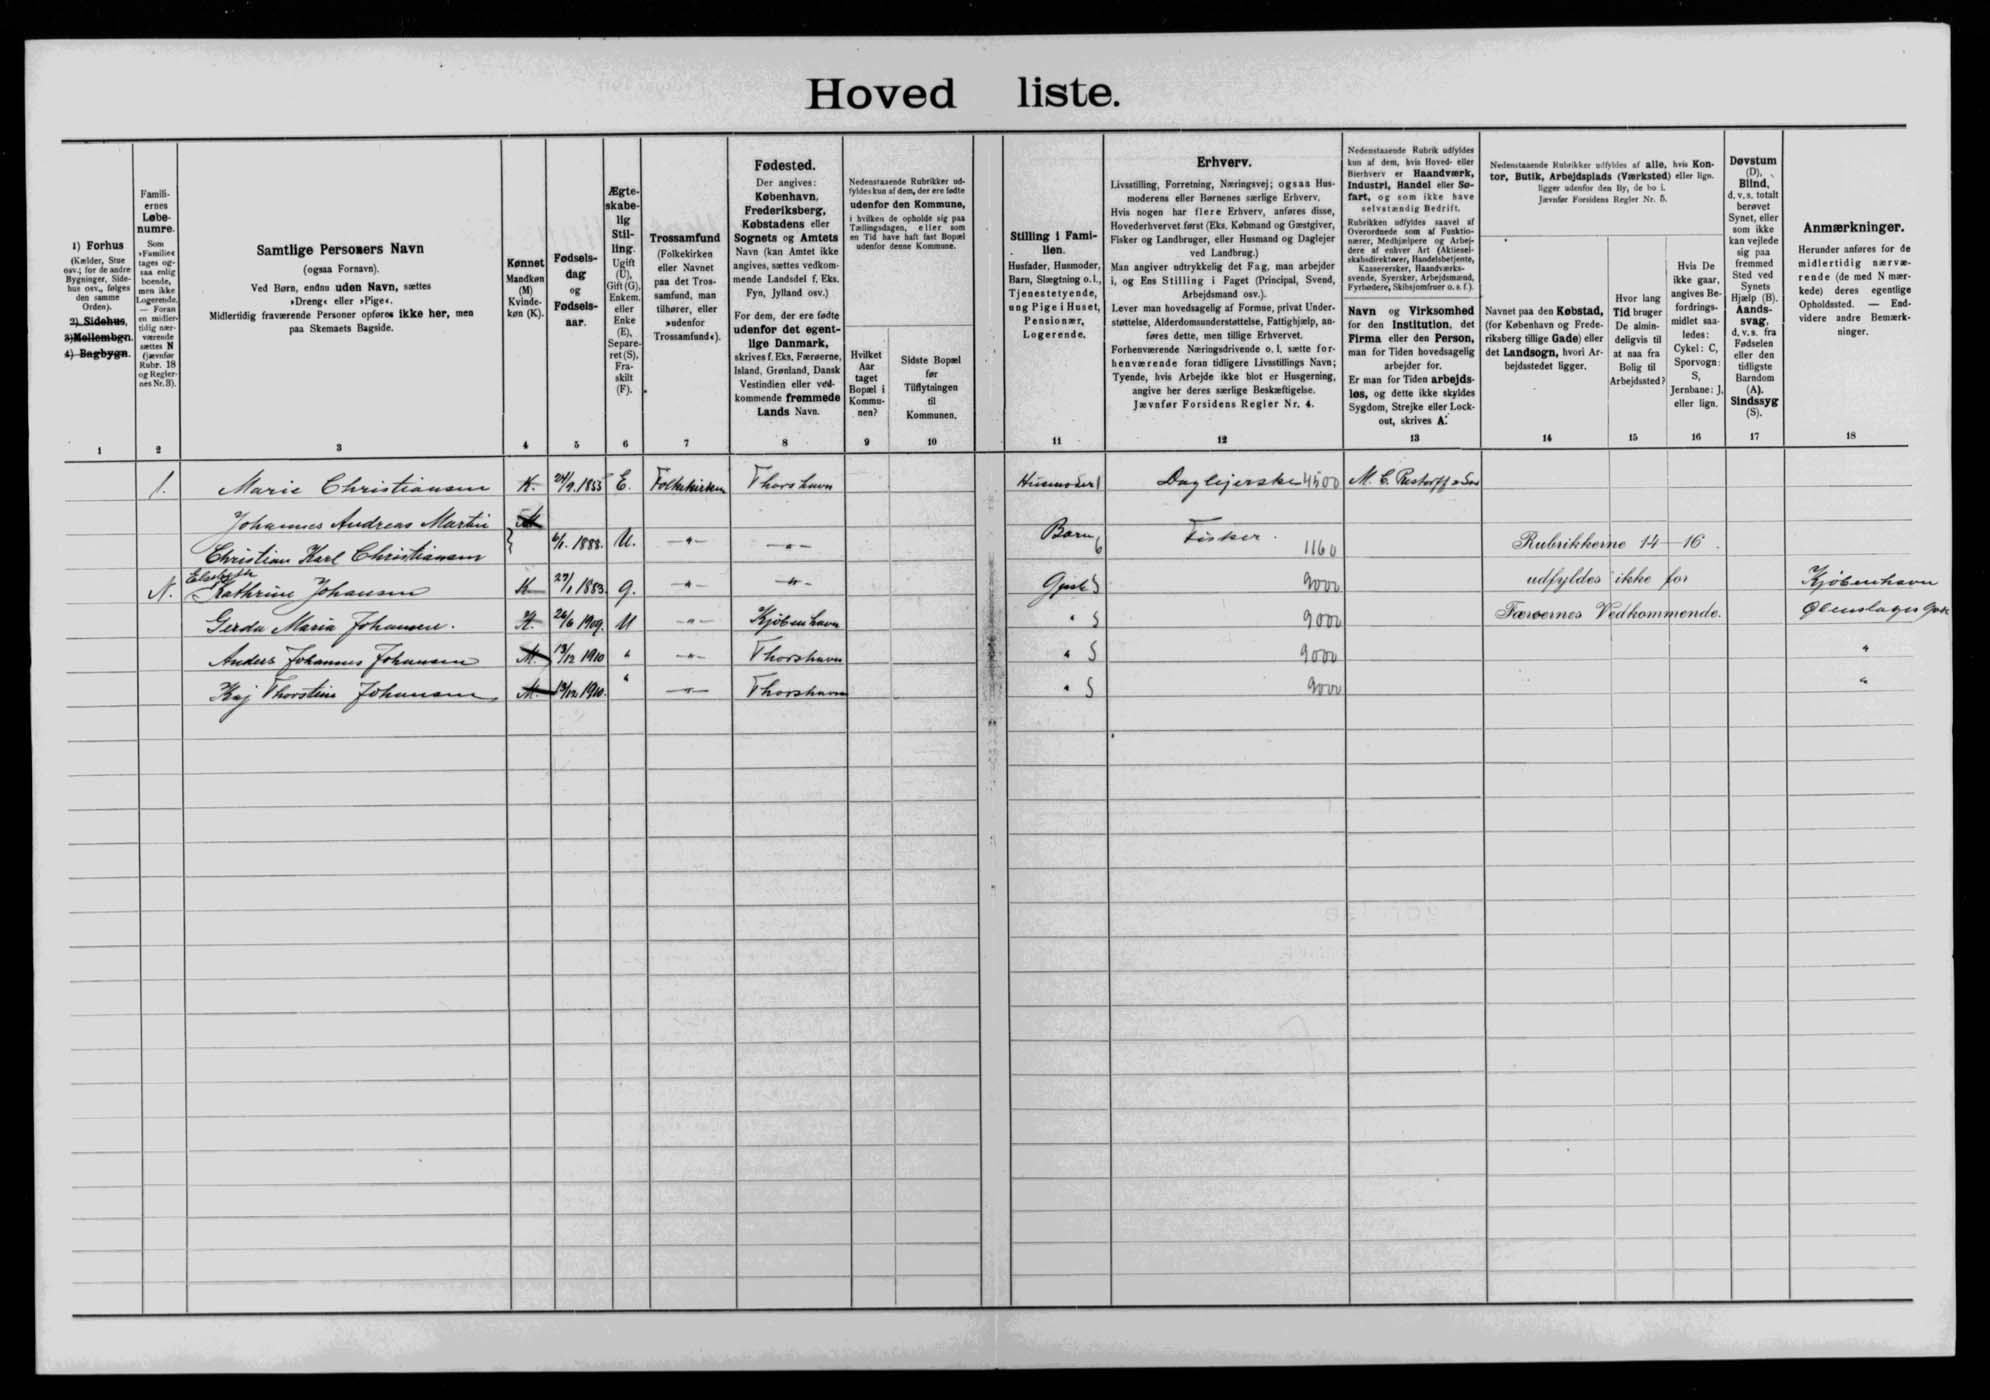 Hovedliste.
1) Forhus
(Kælder, Stue
osv.; for de andre
Bygninger, Side-
hus osv., følges
den samme
Orden).
2) Sidehus,
3) Mellembgn.
4) Bagbygn.
1
Famili-
ernes
Løbe-
numre.
Som
»Familie«
tages og-
saa enlig
boende,
men ikke
Logerende.
— Foran
en midler-
tidig nær-
værende
sættes N
(jævnfør
Rubr. 18
og Regler-
nes Nr. 3).
2
Samtlige Personers Navn
(ogsaa Fornavn).
Ved Børn, endnu uden Navn, sættes
»Dreng« eller »Pige«.
Midlertidig fraværende Personer opføres ikke her, men
paa Skemaets Bagside.
3
Kønnet
Mandkøn
(M)
Kvinde-
køn (K).
4
Fødsels-
dag
og
Fødsels-
aar.
5
Ægte-
skabe-
lig
Stil-
ling.
Ugift
(U),
Gift (G),
Enkem.
eller
Enke
(E),
Separe-
ret (S),
Fra-
skilt
(F).
6
Trossamfund
(Folkekirken
eller Navnet
paa det Tros-
samfund, man
tilhører, eller
»udenfor
Trossamfund«).
7
Fødested.
Der angives:
København,
Frederiksberg,
Købstadens eller
Sognets og Amtets
Navn (kan Amtet ikke
angives, sættes vedkom-
mende Landsdel f. Eks.
Fyn, Jylland osv.)
For dem, der ere fødte
udenfor det egent-
lige Danmark,
skrives f. Eks. Færøerne,
Island, Grønland, Dansk
Vestindien eller ved-
kommende fremmede
Lands Navn.
8
Nedenstaaende Rubrikker ud-
fyldes kun af dem, der ere fødte
udenfor den Kommune,
i hvilken de opholde sig paa
Tællingsdagen, eller som
en Tid have haft fast Bopæl
udenfor denne Kommune.
Hvilket
Aar
taget
Bopæl i
Kommu-
nen?
9
Sidste Bopæl
før
Tilflytningen
til
Kommunen.
10
Stilling i Fami-
lien.
Husfader, Husmoder,
Barn, Slægtning o. l.,
Tjenestetyende,
ung Pige i Huset,
Pensionær,
Logerende.
11
Erhverv.
Livsstilling, Forretning, Næringsvej; ogsaa Hus-
moderens eller Børnenes særlige Erhverv.
Hvis nogen har flere Erhverv, anføres disse,
Hovederhvervet først (Eks. Købmand og Gæstgiver,
Fisker og Landbruger, eller Husmand og Daglejer
ved Landbrug.)
Man angiver udtrykkelig det Fag, man arbejder
i, og Ens Stilling i Faget (Principal, Svend,
Arbejdsmand osv.).
Lever man hovedsagelig af Formue, privat Under-
støttelse, Alderdomsunderstøttelse, Fattighjælp, an-
føres dette, men tillige Erhvervet.
Forhenværende Næringsdrivende o. l. sætte for-
henværende foran tidligere Livsstillings Navn;
Tyende, hvis Arbejde ikke blot er Husgerning,
angive her deres særlige Beskæftigelse.
Jævnfør Forsidens Regler Nr. 4.
12
Nedenstaaende Rubrik udfyldes
kun af dem, hvis Hoved- eller
Bierhverv er Haandværk,
Industri, Handel eller Sø-
fart, og som ikke have
selvstændig Bedrift.
Rubrikken udfyldes saavel af
Overordnede som af Funktio-
nærer, Medhjælpere og Arbej-
dere af enhver Art (Aktiesel-
skabsdirektører, Handelsbetjente,
Kasserersker, Haandværks-
svende, Syersker, Arbejdsmænd,
Fyrbødere, Skibsjomfruer o. s. f.).
Navn og Virksomhed
for den Institution, det
Firma eller den Person,
man for Tiden hovedsagelig
arbejder for.
Er man for Tiden arbejds-
løs, og dette ikke skyldes
Sygdom, Strejke eller Lock-
out, skrives A.
13
Nedenstaaende Rubrikker udfyldes af alle, hvis Kon-
tor, Butik, Arbejdsplads (Værksted) eller lign.
ligger udenfor den By, de bo i.
Jævnfør Forsidens Regler Nr. 5.
Navnet paa den Købstad,
(for København og Frede-
riksberg tillige Gade) eller
det Landsogn, hvori Ar-
bejdsstedet ligger.
14
Hvor lang
Tid bruger
De almin-
deligvis til
at naa fra
Bolig til
Arbejdssted?
15
Hvis De
ikke gaar,
angives Be-
fordrings-
midlet saa-
ledes:
Cykel: C,
Sporvogn:
S,
Jernbane: J,
eller lign.
16
Døvstum
(D),
Blind,
d. v. s. totalt
berøvet
Synet, eller
som ikke
kan vejlede
sig paa
fremmed
Sted ved
Synets
Hjælp (B).
Aands-
svag,
d. v. s. fra
Fødselen
eller den
tidligste
Barndom
(A).
Sindssyg
(S).
17
Anmærkninger.
Herunder anføres for de
midlertidig nærvæ-
rende (de med N mær-
kede) deres egentlige
Opholdssted. — End-
videre andre Bemærk-
ninger.
18
1. Marie Christiansen K. 24/9.1855 E. Folkekirken Thorshavn Husmoder 1 Daglejerske 4500 M. C. Restorff & Søn
Johannes Andreas Martin M
Christian Karl Christiansen 6/1.1888. U. —„— —„— Barn 6 Fisker. 1160 Rubrikkerne 14—16.
Elisabeth
N. Kathrine Johansen K 27/1 1883. g. —„— —„— Gjæst S 9000 udfyldes ikke for Kjøbenhavn
Gerda Maria Johansen. K. 26/6 1909. U —„— Kjøbenhavn „ S 9000 Færøernes Vedkommende.
Anders Johannes Johansen M. 13/12 1910 „ —„— Thorshavn „ S 9000 „
Kaj Thorstein Johansen M. 13/12 1910. „ —„— Thorshavn „ S 9000 „